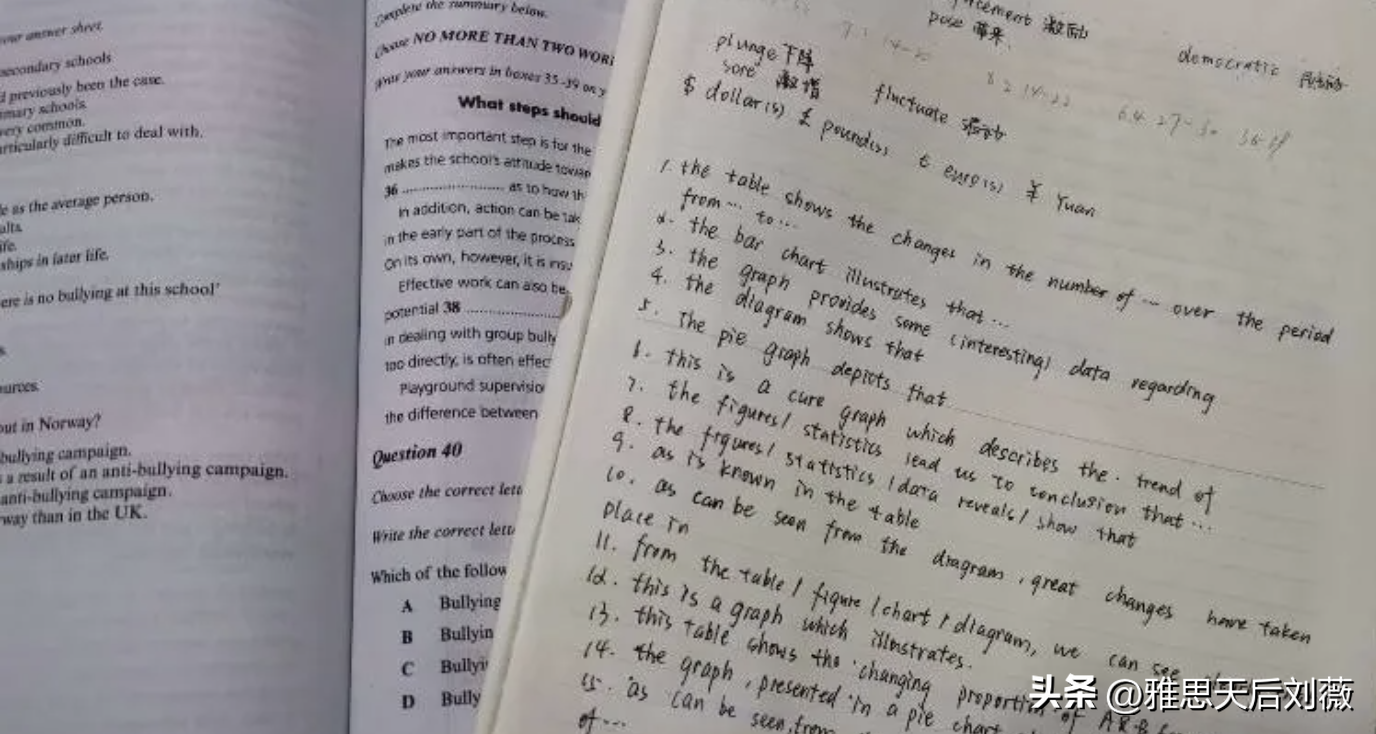 your answer sheet.
secondary schools
d previously been the case.
mary schools.
very common.
articularly difficult to deal with.
le as the average person.
ults.
ife.
ships in later life.
ere is no bullying at this school'
ources.
out in Norway?
bullying campaign.
s a result of an anti-bullying campaign.
anti-bullying campaign.
way than in the UK.
Complete the summary below.
Choose NO MORE THAN TWO WOR
Write your answers in boxes 35-39 on y
What steps should
The most important step is for the
makes the school's attitude towar
36 .................. as to how th
In addition, action can be tak
in the early part of the process
On its own, however, it is insu
Effective work can also be
potential 38 ..................
in dealing with group bully
too directly, is often effec
Playground supervisio
the difference between
Question 40
Choose the correct lett
Write the correct lett
Which of the follow
A Bullying
B Bullyin
C Bullyi
D Bully
citement 激励
pose 带来
democratic
plunge 下降
fluctuate
$ dollar(s) £ pound(s) € euro(s) ¥ Yuan
1. the table shows the changes in the number of ... over the period
from ... to ...
2. the bar chart illustrates that ...
3. the graph provides some (interesting) data regarding
4. the diagram shows that
5. The pie graph depicts that
6. this is a cure graph which describes the trend of
7. the figures / statistics lead us to conclusion that ...
8. the figures / statistics / data reveals / show that
9. as is known in the table
10. as can be seen from the diagram, great changes have taken
place in
11. from the table / figure / chart / diagram, we can see
12. this is a graph which illustrates.
13. this table shows the changing proportion of A & B
14. the graph, presented in a pie chart
15. as can be seen from
of ...
头条 @雅思天后刘薇